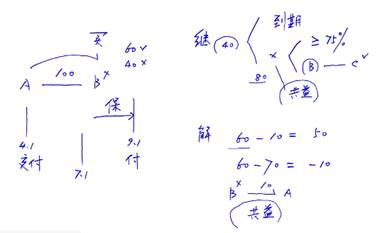 买
60√
40×
100
A B×
保
4.1
交付
7.1
9.1
付
继 40
到期
×
≥75%
B — C√
80
共益
解 60-10=50
60-70=-10
B× 10 A
共益